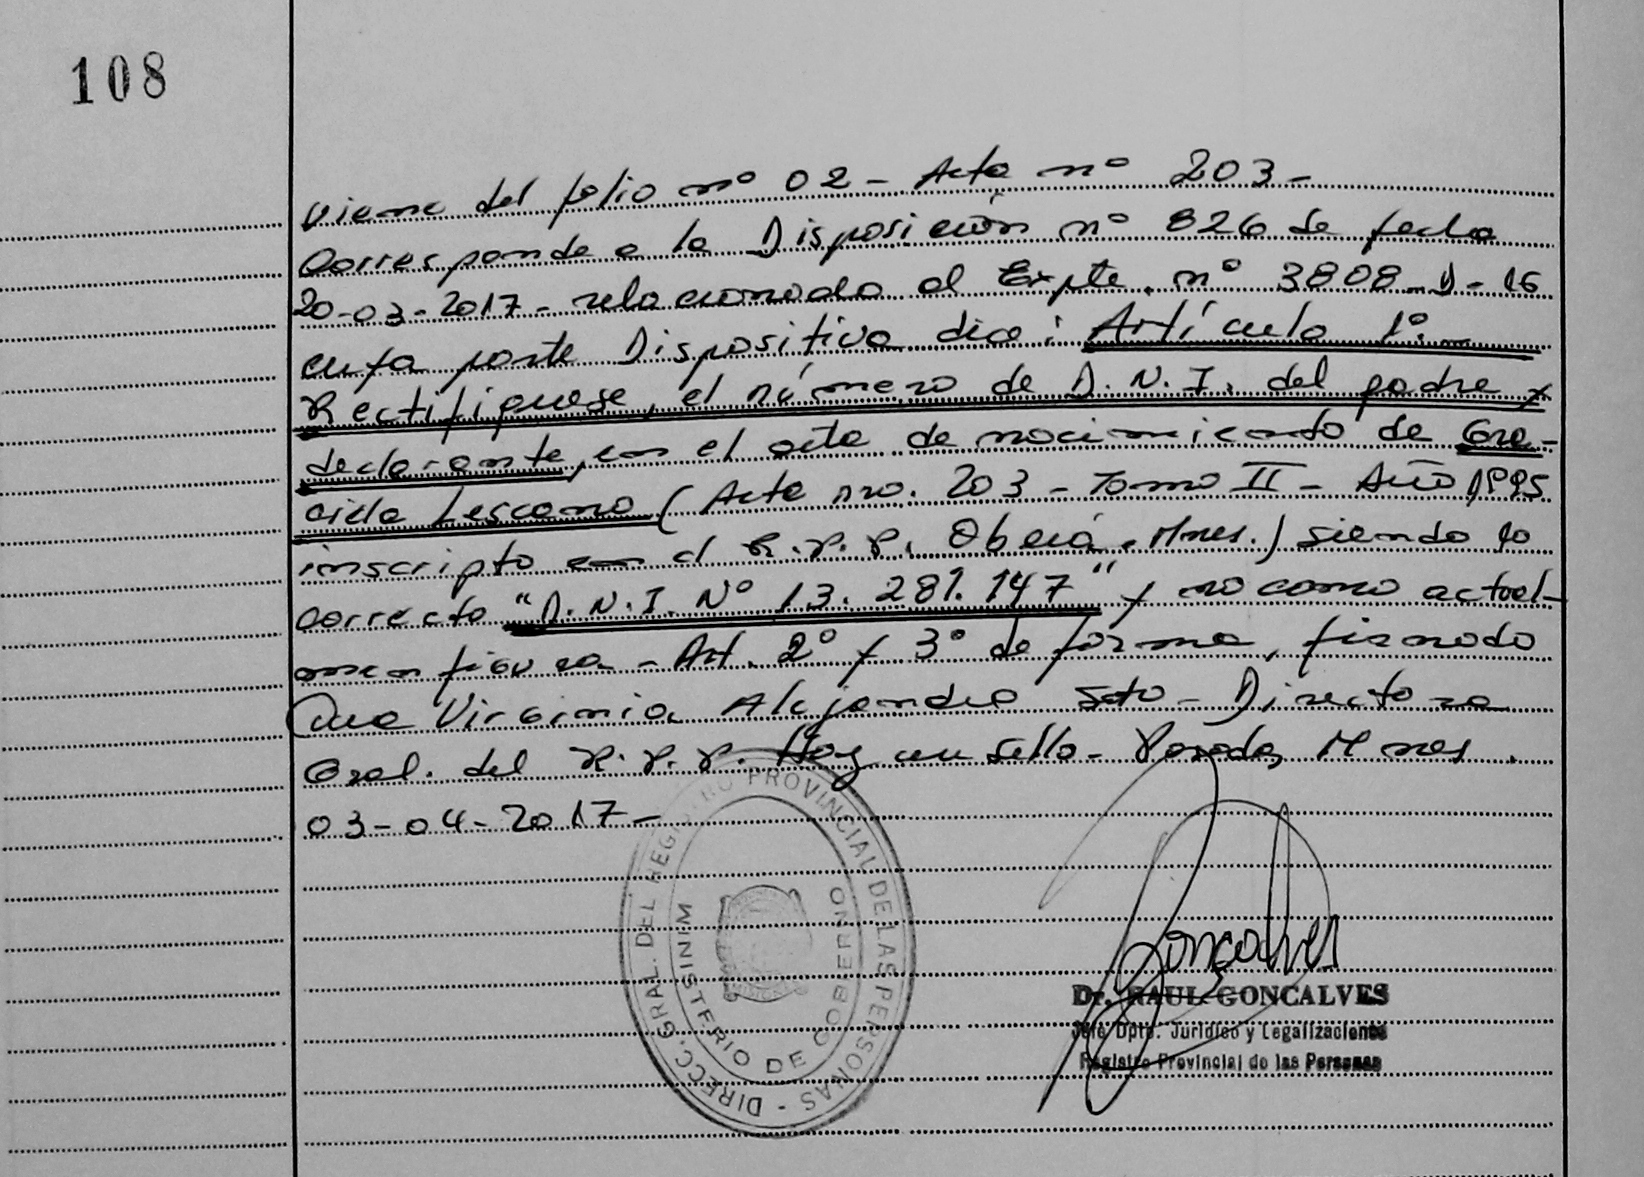 108
Viene del folio nº 02 - Acta nº 203 -
Corresponde a la Disposición nº 826 de fecha
20-03-2017 - relacionado al Expte. nº 3808-D-16
cuya parte Dispositiva dice: Artículo 1º.
Rectifíquese, el número de D.N.I. del padre y
declarante, en el acta de nacimiento de Gra-
ciela Lescano (Acta nro. 203 - Tomo II - Año 1995
inscripto en el R.P.P. Oberá. Mnes.) siendo lo
correcto "D.N.I. Nº 13.281.147" y no como actual-
men figura - Art. 2º y 3º de forma, firmado
Dra Virginia Alejandra Soto - Directora
Gral. del R.P.P. Hay un sello - Posadas Mnes.
03-04-2017 -
DIRECC. GRAL. DEL REGISTRO PROVINCIAL DE LAS PERSONAS -
MINISTERIO DE GOBIERNO
Goncalves
Dr. RAUL GONCALVES
Jefe Dpto. Jurídico y Legalizaciones
Registro Provincial de las Personas